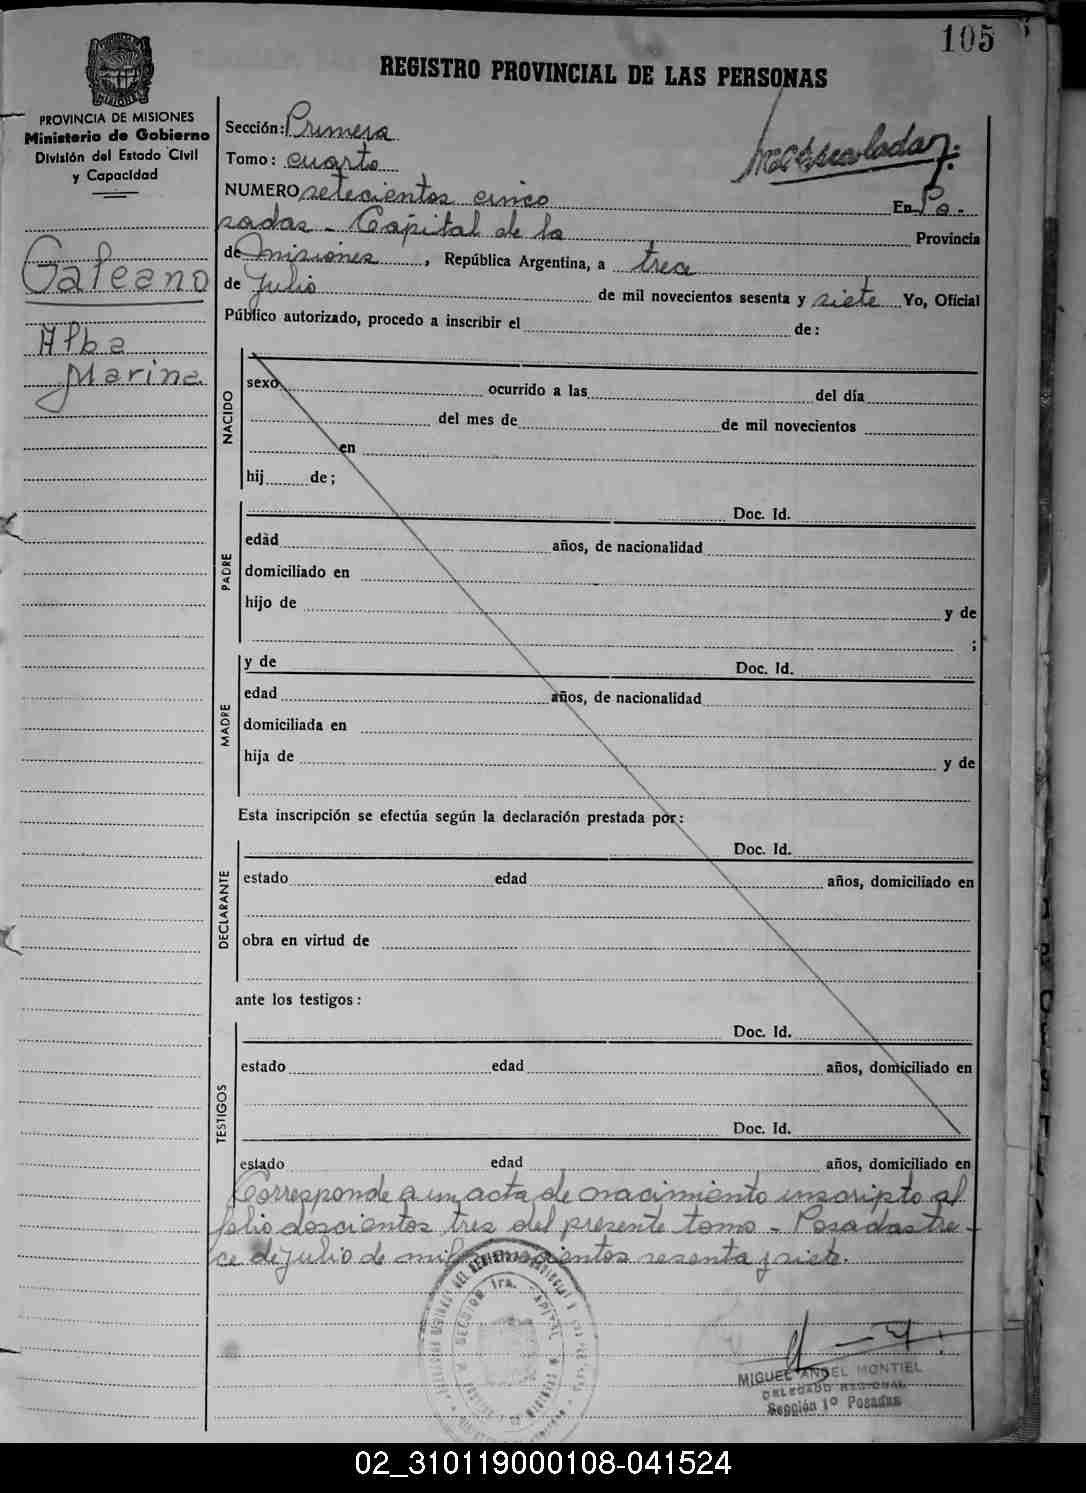 105
REGISTRO PROVINCIAL DE LAS PERSONAS
PROVINCIA DE MISIONES
Ministerio de Gobierno
División del Estado Civil
y Capacidad
Galeano
Alba
Marina
Sección: Primera
Tomo: cuarto
NUMERO setecientos cinco En Po-
sadas - Capital de la Provincia
de Misiones, República Argentina, a trece
de Julio de mil novecientos sesenta y siete Yo, Oficial
Público autorizado, procedo a inscribir el de:
NACIDO
sexo ocurrido a las del día
del mes de de mil novecientos
en
hij de;
PADRE
Doc. Id.
edad años, de nacionalidad
domiciliado en
hijo de y de
;
MADRE
y de Doc. Id.
edad años, de nacionalidad
domiciliada en
hija de y de
Esta inscripción se efectúa según la declaración prestada por:
DECLARANTE
Doc. Id.
estado edad años, domiciliado en
obra en virtud de
ante los testigos:
TESTIGOS
Doc. Id.
estado edad años, domiciliado en
Doc. Id.
estado edad años, domiciliado en
Corresponde a un acta de nacimiento inscripto al
folio doscientos tres del presente tomo - Posadas tre-
ce de julio de mil novecientos sesenta y siete.
SECCION 1ra. CAPITAL
MIGUEL ANGEL MONTIEL
DELEGADO REGIONAL
Sección 1º Posadas
02_310119000108-041524